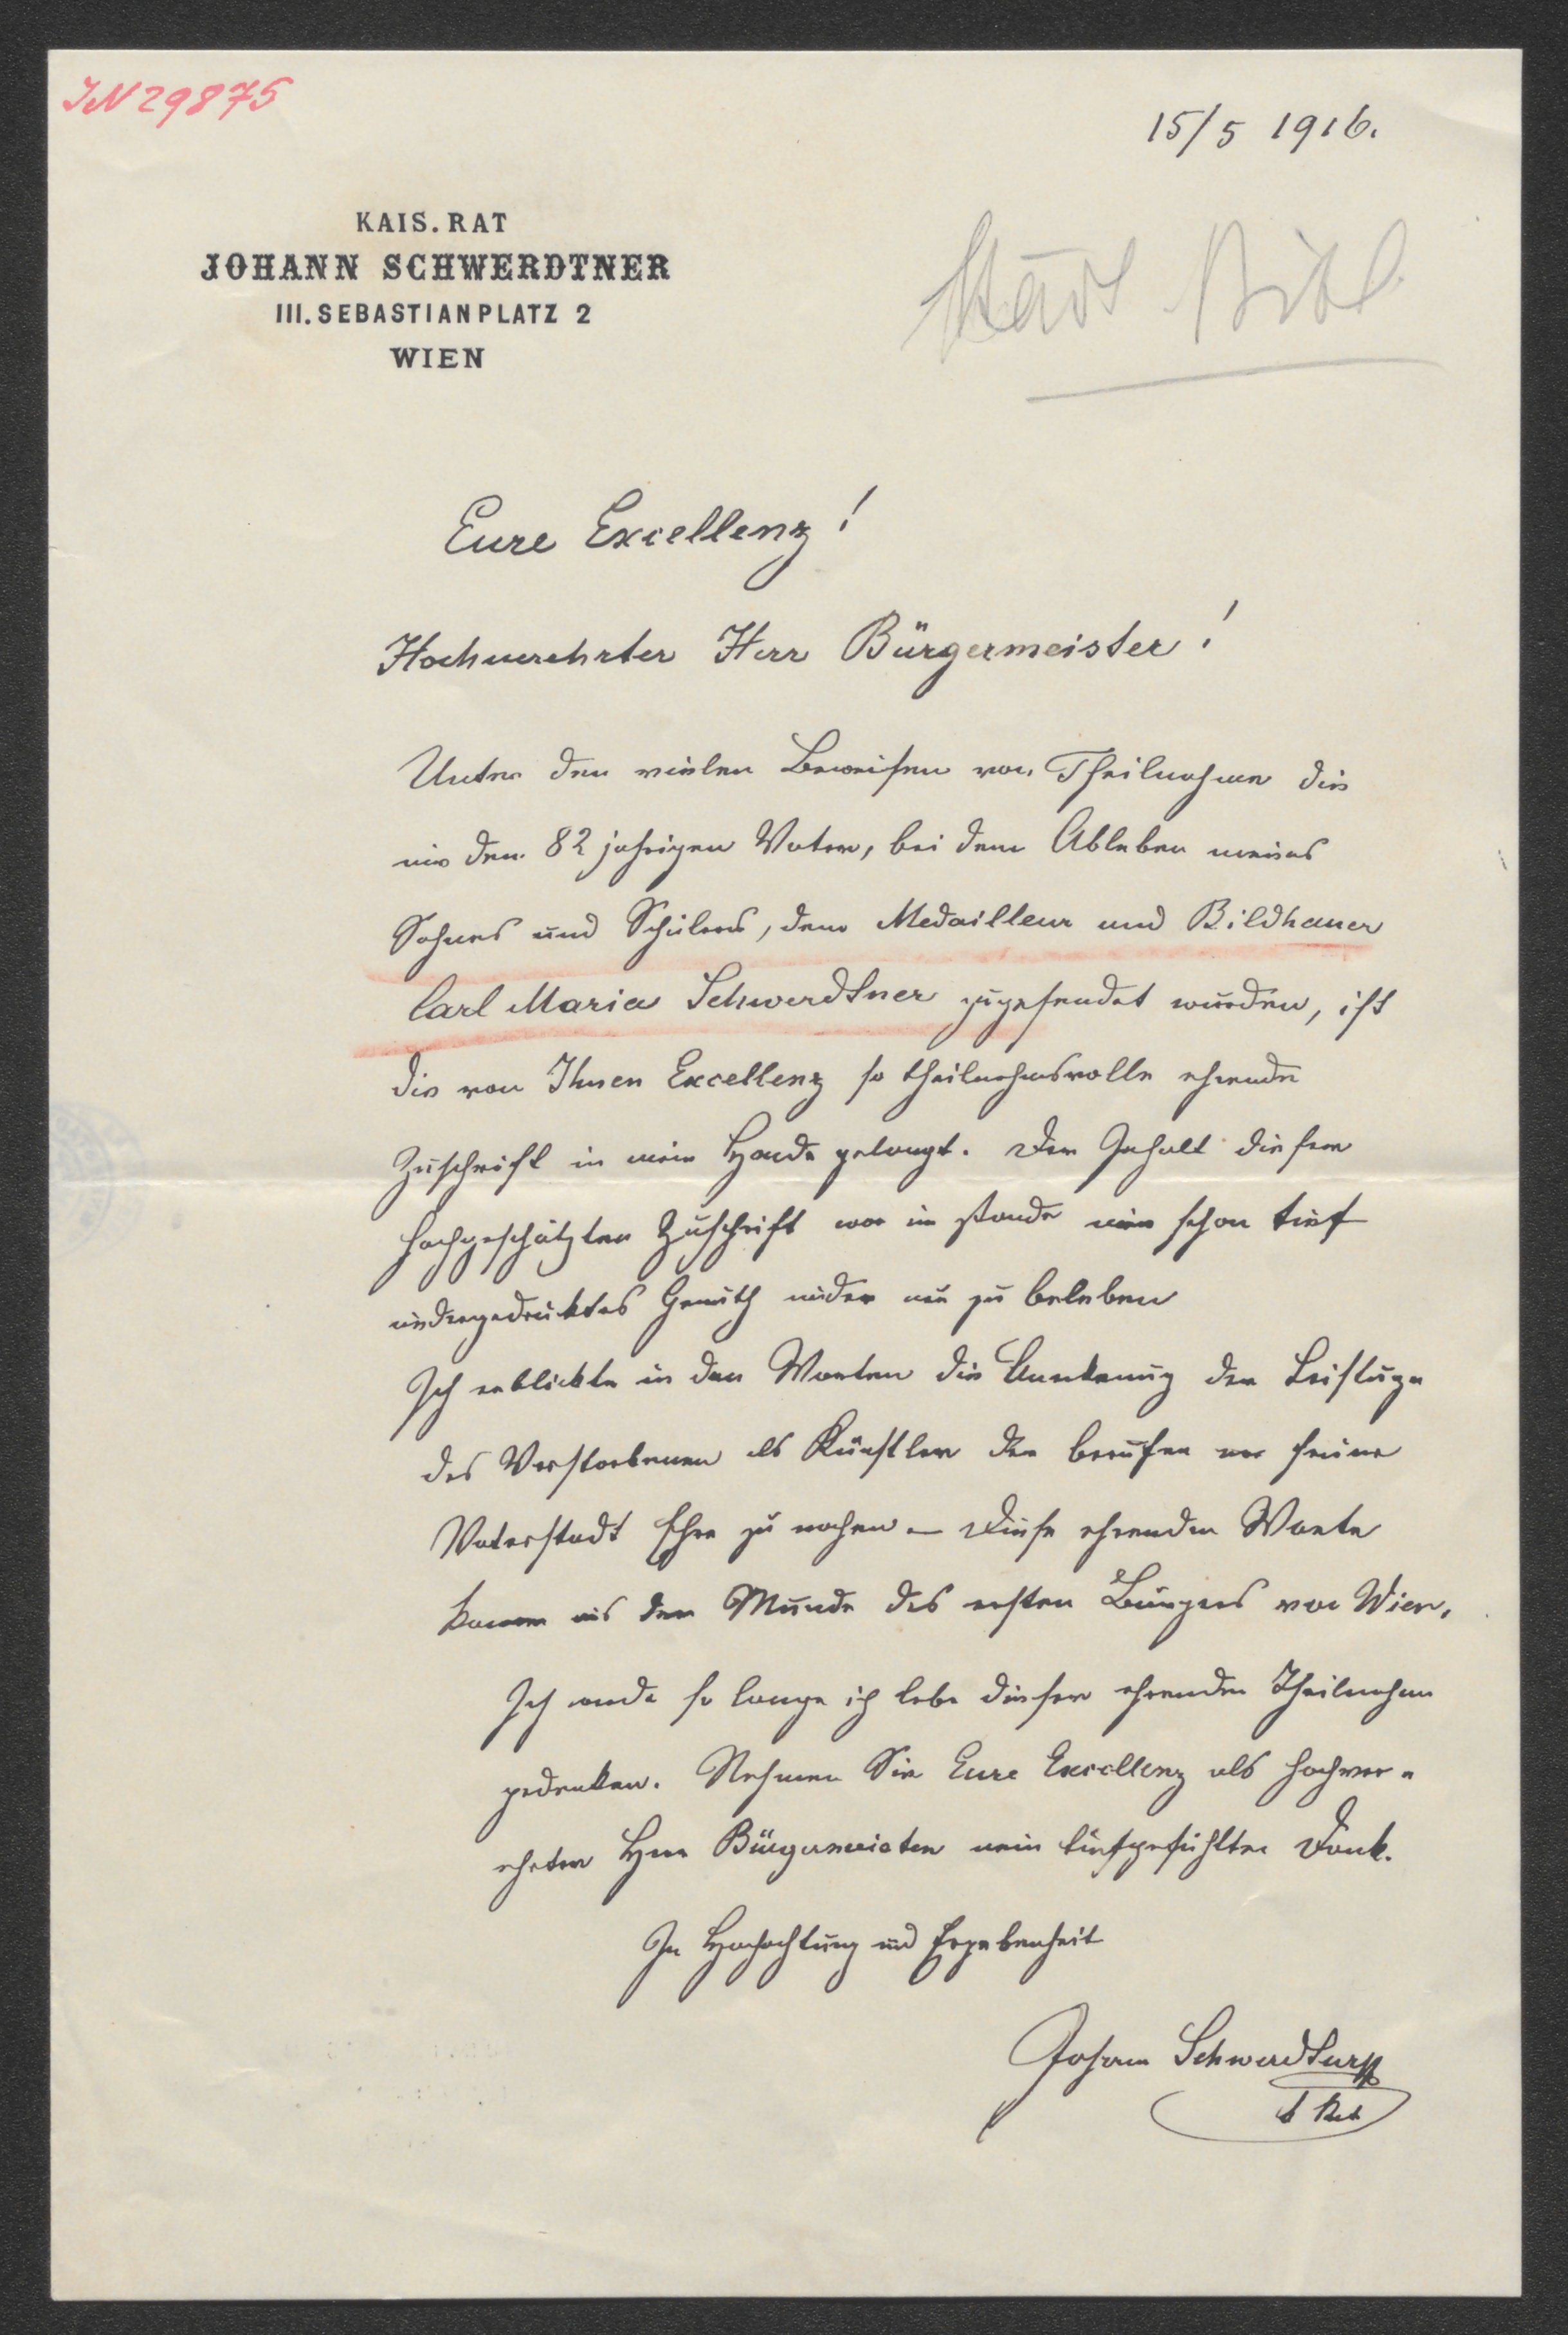 IN 29875
15/5 1916.
KAIS. RAT
JOHANN SCHWERDTNER
III. SEBASTIANPLATZ 2
WIEN
Städt Bibl.
Eure Excellenz!
Hochverehrter Herr Bürgermeister!
Unter den vielen Beweisen von Theilnahme die
mir dem 82 jahrigen Vater, bei dem Ableben meines
Sohnes und Schülers, dem Medailleur und Bildhauer
Carl Maria Schwerdtner zugesendet wurden, ist
die von Ihnen Excellenz so theilnahmsvolle ehrende
Zuschrift in meine Hände gelangt. Der Inhalt dieser
hochgeschätzten Zuschrift war im stande mein schon tief
niedergedrücktes Gemüth wieder neu zu beleben
Ich erblickte in den Worten die Anerkennung der Leistunge
des Verstorbenen als Künstler der berufen war seiner
Vaterstadt Ehre zu machen – Diese ehrenden Worte
kamen aus dem Munde des ersten Bürgers von Wien.
Ich werde so lange ich lebe dieser ehrenden Theilnahme
gedenken. Nehmen Sie Eure Excellenz als hochver-
ehrter Herr Bürgermeister mein tiefgefühlten Dank.
In Hochachtung und Ergebenheit
Johann Schwerdtner
k Rat